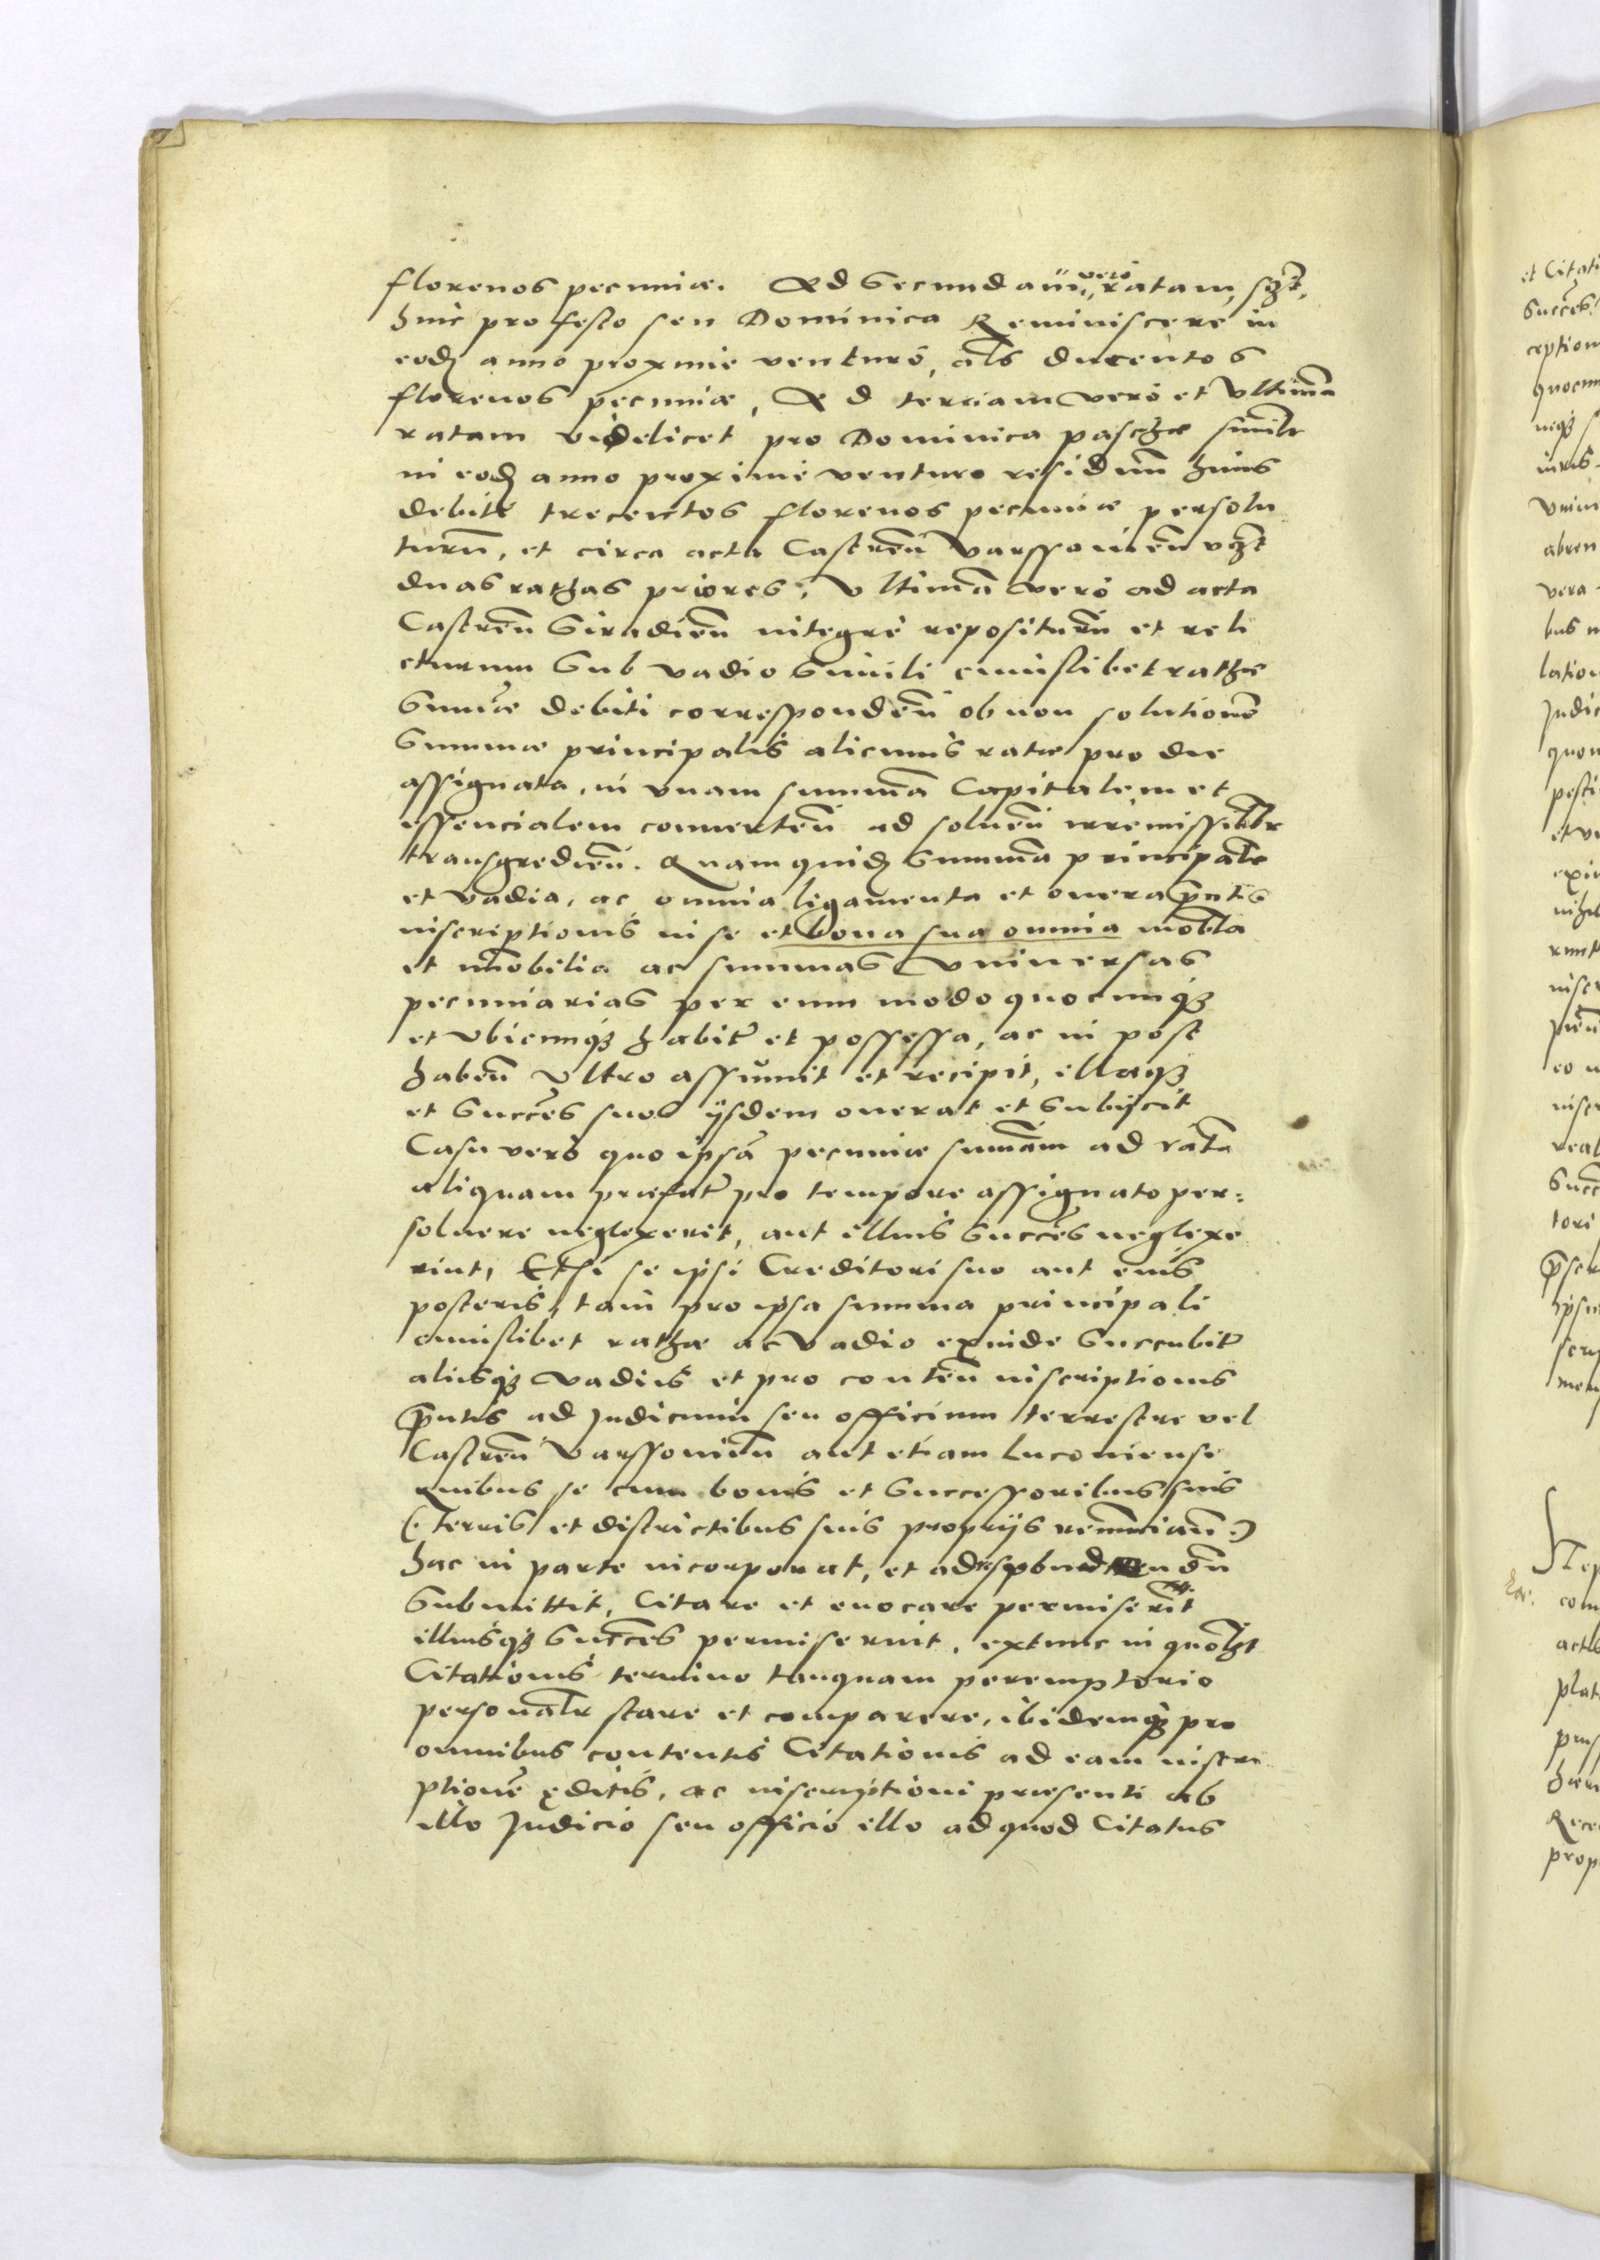 florenos pecuniæ. Ad Secundam vero ratam, sczt.
hinc pro festo seu Dominica Reminiscere in
eodꝫ anno proxime venturo, als ducentos
florenos pecuniæ, Ad terciam vero et Vltimã
ratam videlicet pro Dominica paschæ similr
in eodꝫ anno proxime venturo residuũ huius
debiti trecentos florenos pecuniæ persolu
turũ, et circa acta Castreñ Varssovieñ vczt
duas rathas priores, Vltimã vero ad acta
Castreñ Siradieñ integre repositurũ et reli
cturum Sub vadio Simili cuiuslibet rathæ
Summæ debiti correspondeñ ob non solutionẽ
Summæ principalis alicuius ratæ pro die
assignata, in vnam summã Capitalem et
essencialem conuerteñ ad solueñ irremissiblr
transgredieñ. Quam quidꝫ Summã principalẽ
et vadia, ac omnia ligamenta et onera p̃ntis
inscriptionis in se et bona sua omnia mobla
et im̃obilia ac summas Vniuersas
pecuniarias per eum modo quocunqꝫ
et vbicunqꝫ habit̃ et possessa, ac in post
habeñ Vltro assumit et recipit, illaqꝫ
et Succes̃ suos ijsdem onerat et Subijcit
Casu vero quo ipsã pecuniæ sum̃am ad ratã
aliquam præfat̃ pro tempore assignato per:
soluere neglexerit, aut illius Succes̃ neglexe
rint, Etsi se ipsi Creditori suo aut eius
posteris, tam pro ipsa summa principali
cuiuslibet rathæ ac vadio exinde Succubit̃
aliisqꝫ vadiis et pro conteñ inscriptionis
p̃ntis ad Judicium seu officium terrestre vel
Castreñ Varssovieñ aut etiam Luconiense
quibus se cum bonis et Successoribus suis
(. Terris et districtibus suis proprijs renunciañ .)
hac in parte incorporat, et ad respondendũ
Submittit, Citare et euocare permiserit
illiusqꝫ Succes̃ permiserint, extunc in quolzt
Citationis termino tanquam peremptorio
personalr stare et comparere, ibidemqꝫ pro
omnibus contentis Citationis ad eam inscri
ptionẽ editis, ac inscriptioni præsenti ab
illo Judicio seu officio illo ad quod Citatus